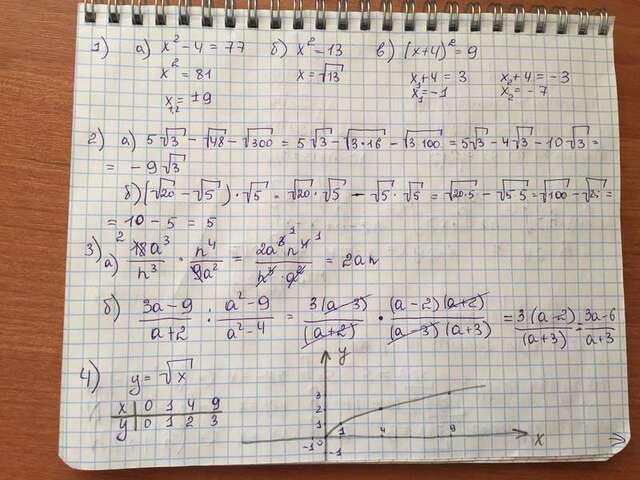 1) а) x² - 4 = 77 б) x² = 13 в) (x+4)² = 9
x² = 81 x = √13 x₁+4 = 3 x₂+4 = -3
x₁,₂ = ±9 x₁ = -1 x₂ = -7
2) а) 5√3 - √48 - √300 = 5√3 - √3·16 - √3·100 = 5√3 - 4√3 - 10√3 =
= - 9√3
б) (√20 - √5)·√5 = √20·√5 - √5·√5 = √20·5 - √5·5 = √100 - √25 =
= 10 - 5 = 5
3) а) 18a³/n³ · n⁴/9a² = 2a³n⁴/n³·a² = 2an
б) 3a-9/a+2 : a²-9/a²-4 = 3(a-3)/(a+2) · (a-2)(a+2)/(a-3)(a+3) = 3(a-2)/(a+3) = 3a-6/a+3
4) y = √x y
x 0 1 4 9
y 0 1 2 3
3
2
1
0 1 4 9 x
-1
-1